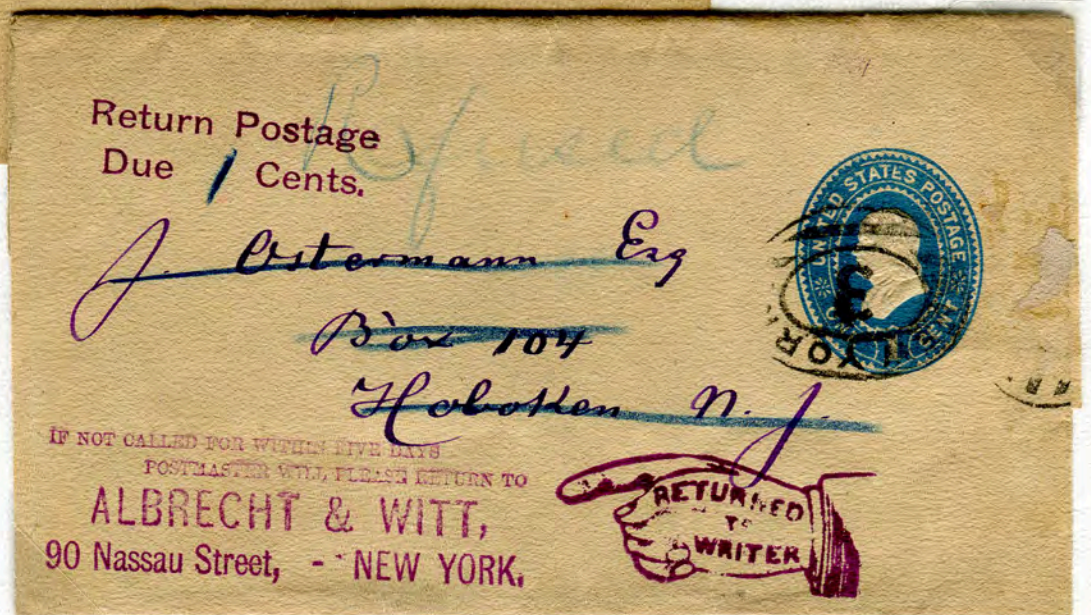 Refused
Return Postage
Due 1 Cents.
UNITED STATES POSTAGE
ONE CENT
3
YORK
J. Ostermann Esq
Box 104
Hoboken N. J.
IF NOT CALLED FOR WITHIN FIVE DAYS
POSTMASTER WILL PLEASE RETURN TO
ALBRECHT & WITT,
90 Nassau Street, - NEW YORK.
RETURNED
TO
WRITER